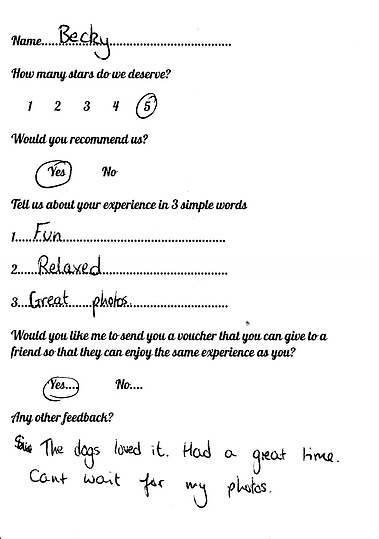 Name....Becky..............................
How many stars do we deserve?
1 2 3 4 5
Would you recommend us?
Yes No
Tell us about your experience in 3 simple words
1.....Fun..........................................
2.....Relaxed................................
3....Great photos..........................
Would you like me to send you a voucher that you can give to a
friend so that they can enjoy the same experience as you?
Yes.... No....
Any other feedback?
The dogs loved it. Had a great time.
Cant wait for my photos.